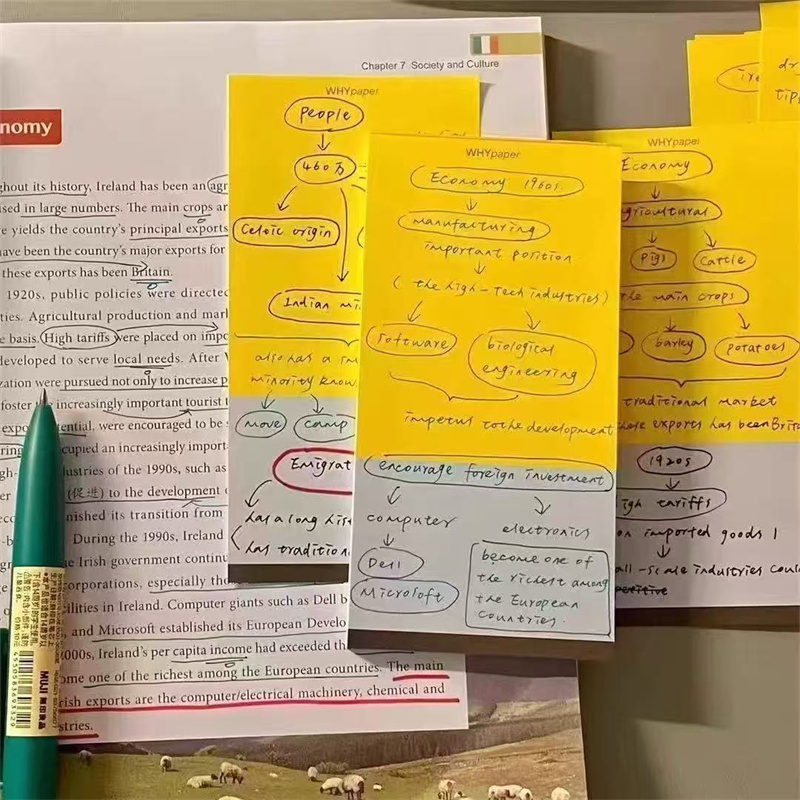 Chapter 7 Society and Culture
nomy
ghout its history, Ireland has been an agr
sed in large numbers. The main crops ar
re yields the country's principal exports
have been the country's major exports for
these exports has been Britain.
1920s, public policies were directed
ties. Agricultural production and mark
e basis. High tariffs were placed on impo
developed to serve local needs. After W
zation were pursued not only to increase p
foster increasingly important tourist t
ential, were encouraged to be s
upied an increasingly import
ustries of the 1990s, such as
(促进) to the development o
nished its transition from
During the 1990s, Ireland
Irish government continu
orporations, especially tho
ilities in Ireland. Computer giants such as Dell b
and Microsoft established its European Develo
000s, Ireland's per capita income had exceeded tha
ome one of the richest among the European countries. The main
rish exports are the computer/electrical machinery, chemical and
stries.
WHYpaper
People
460万
Celoic origin
Indian mi
also has a sm
minority know
move
camp
Emigrat
has a long his
has tradition
WHYpaper
Economy 1960s.
manufacturing
important porition
(the high-tech industries)
software
biological
engineering
impetus to the development
encourage foreign investment
computer
electronics
Dell
Microloft
become one of
the richest among
the European
countries.
WHYpaper
Economy
gricultural
Pigs
Cattle
the main crops
barley
potatoes
traditional market
hose exports has been Brita
1920s
igh tariffs
on imported goods
all-scale industries coul
Ire
dr
tip
MUJI 無印良品
4550583693329